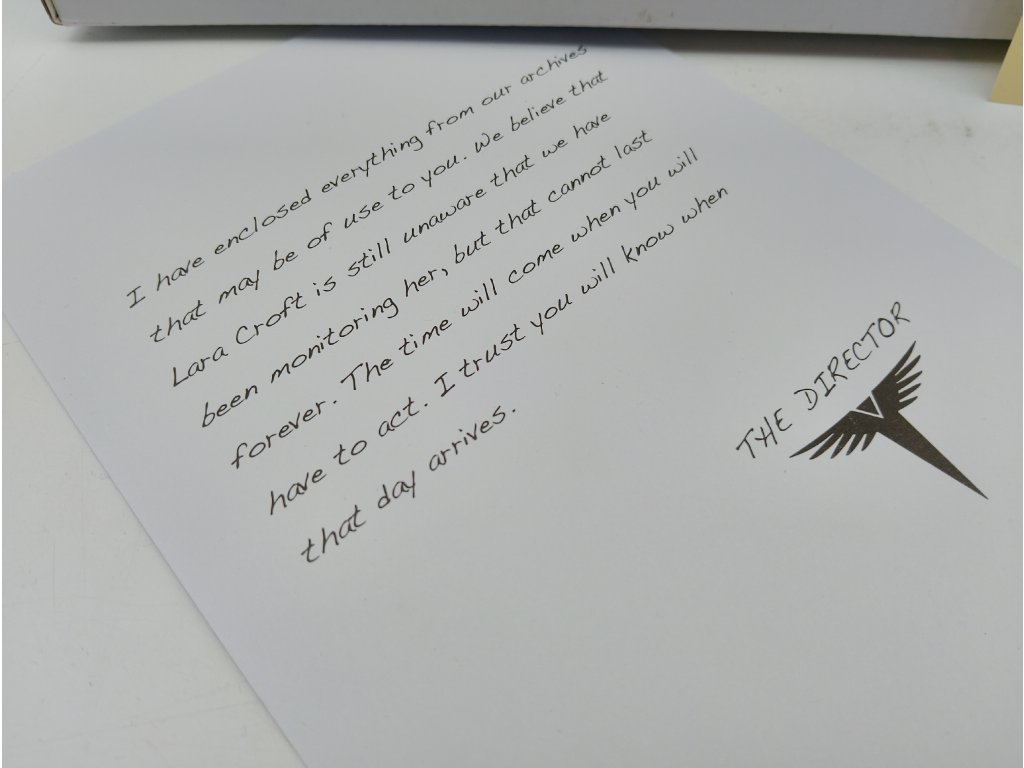 I have enclosed everything from our archives
that may be of use to you. We believe that
Lara Croft is still unaware that we have
been monitoring her, but that cannot last
forever. The time will come when you will
have to act. I trust you will know when
that day arrives.
THE DIRECTOR